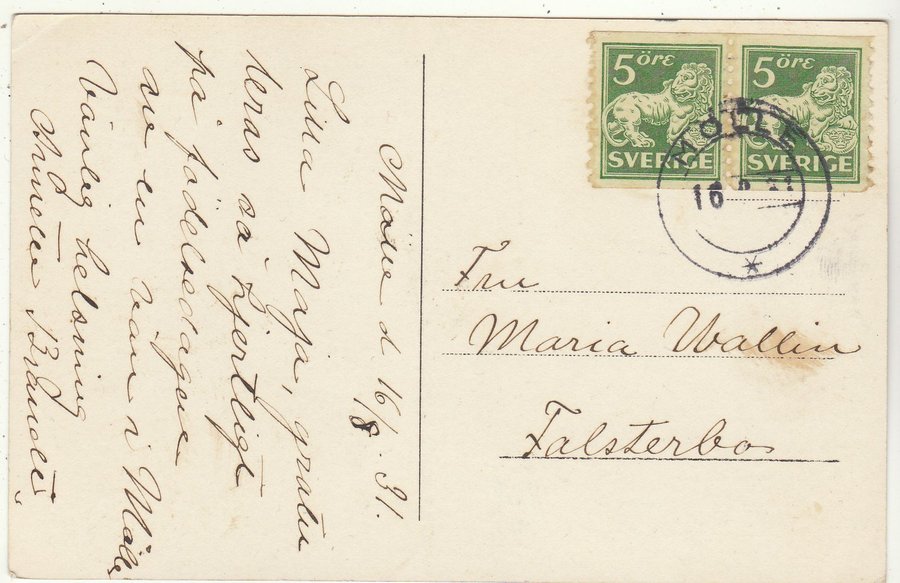 Mölle d 16/8 31.
Lilla Maja, gratu
leras så hjertligt
på födelsedagen
av en vän i Mölle
Vänlig helsning
5 ÖRE
SVERIGE
5 ÖRE
SVERIGE
MÖLLE
16
Fru
Maria Wallin
Falsterbo